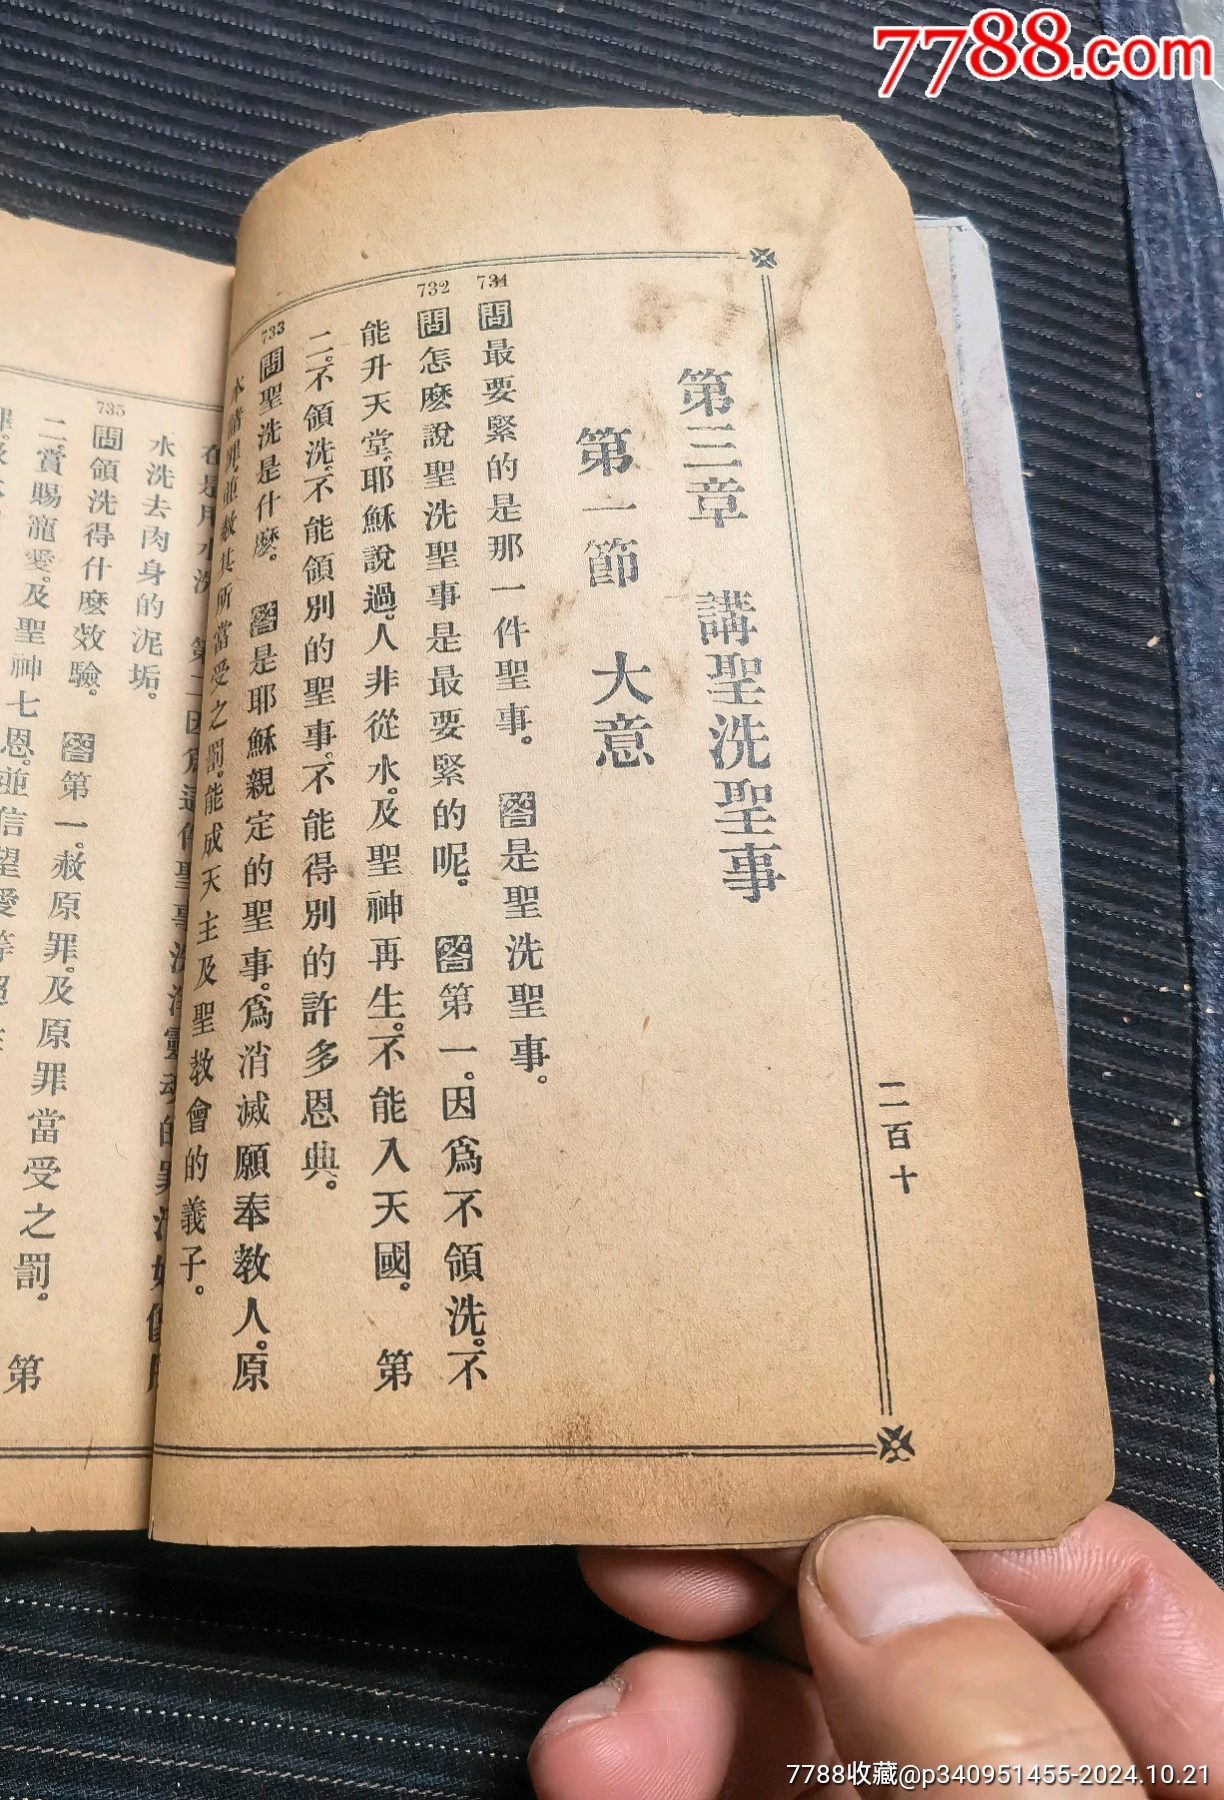 7788.com
第三章 講聖洗聖事
第一節 大意
731 問最要緊的是那一件聖事。 答是聖洗聖事。
732 問怎麽說聖洗聖事是最要緊的呢。 答第一。因爲不領洗。不
能升天堂。耶穌說過。人非從水。及聖神再生。不能入天國。 第
二。不領洗。不能領別的聖事。不能得別的許多恩典。
733 問聖洗是什麽。 答是耶穌親定的聖事。爲消滅願奉教人。原
罪。並赦其所當受之罰。能成天主及聖教會的義子。
二百十
水洗去肉身的泥垢。
735 問領洗得什麽效驗。 答第一。赦原罪。及原罪當受之罰。 第
二。賞賜寵愛。及聖神七恩。並信望愛等
7788收藏@p340951455-2024.10.21